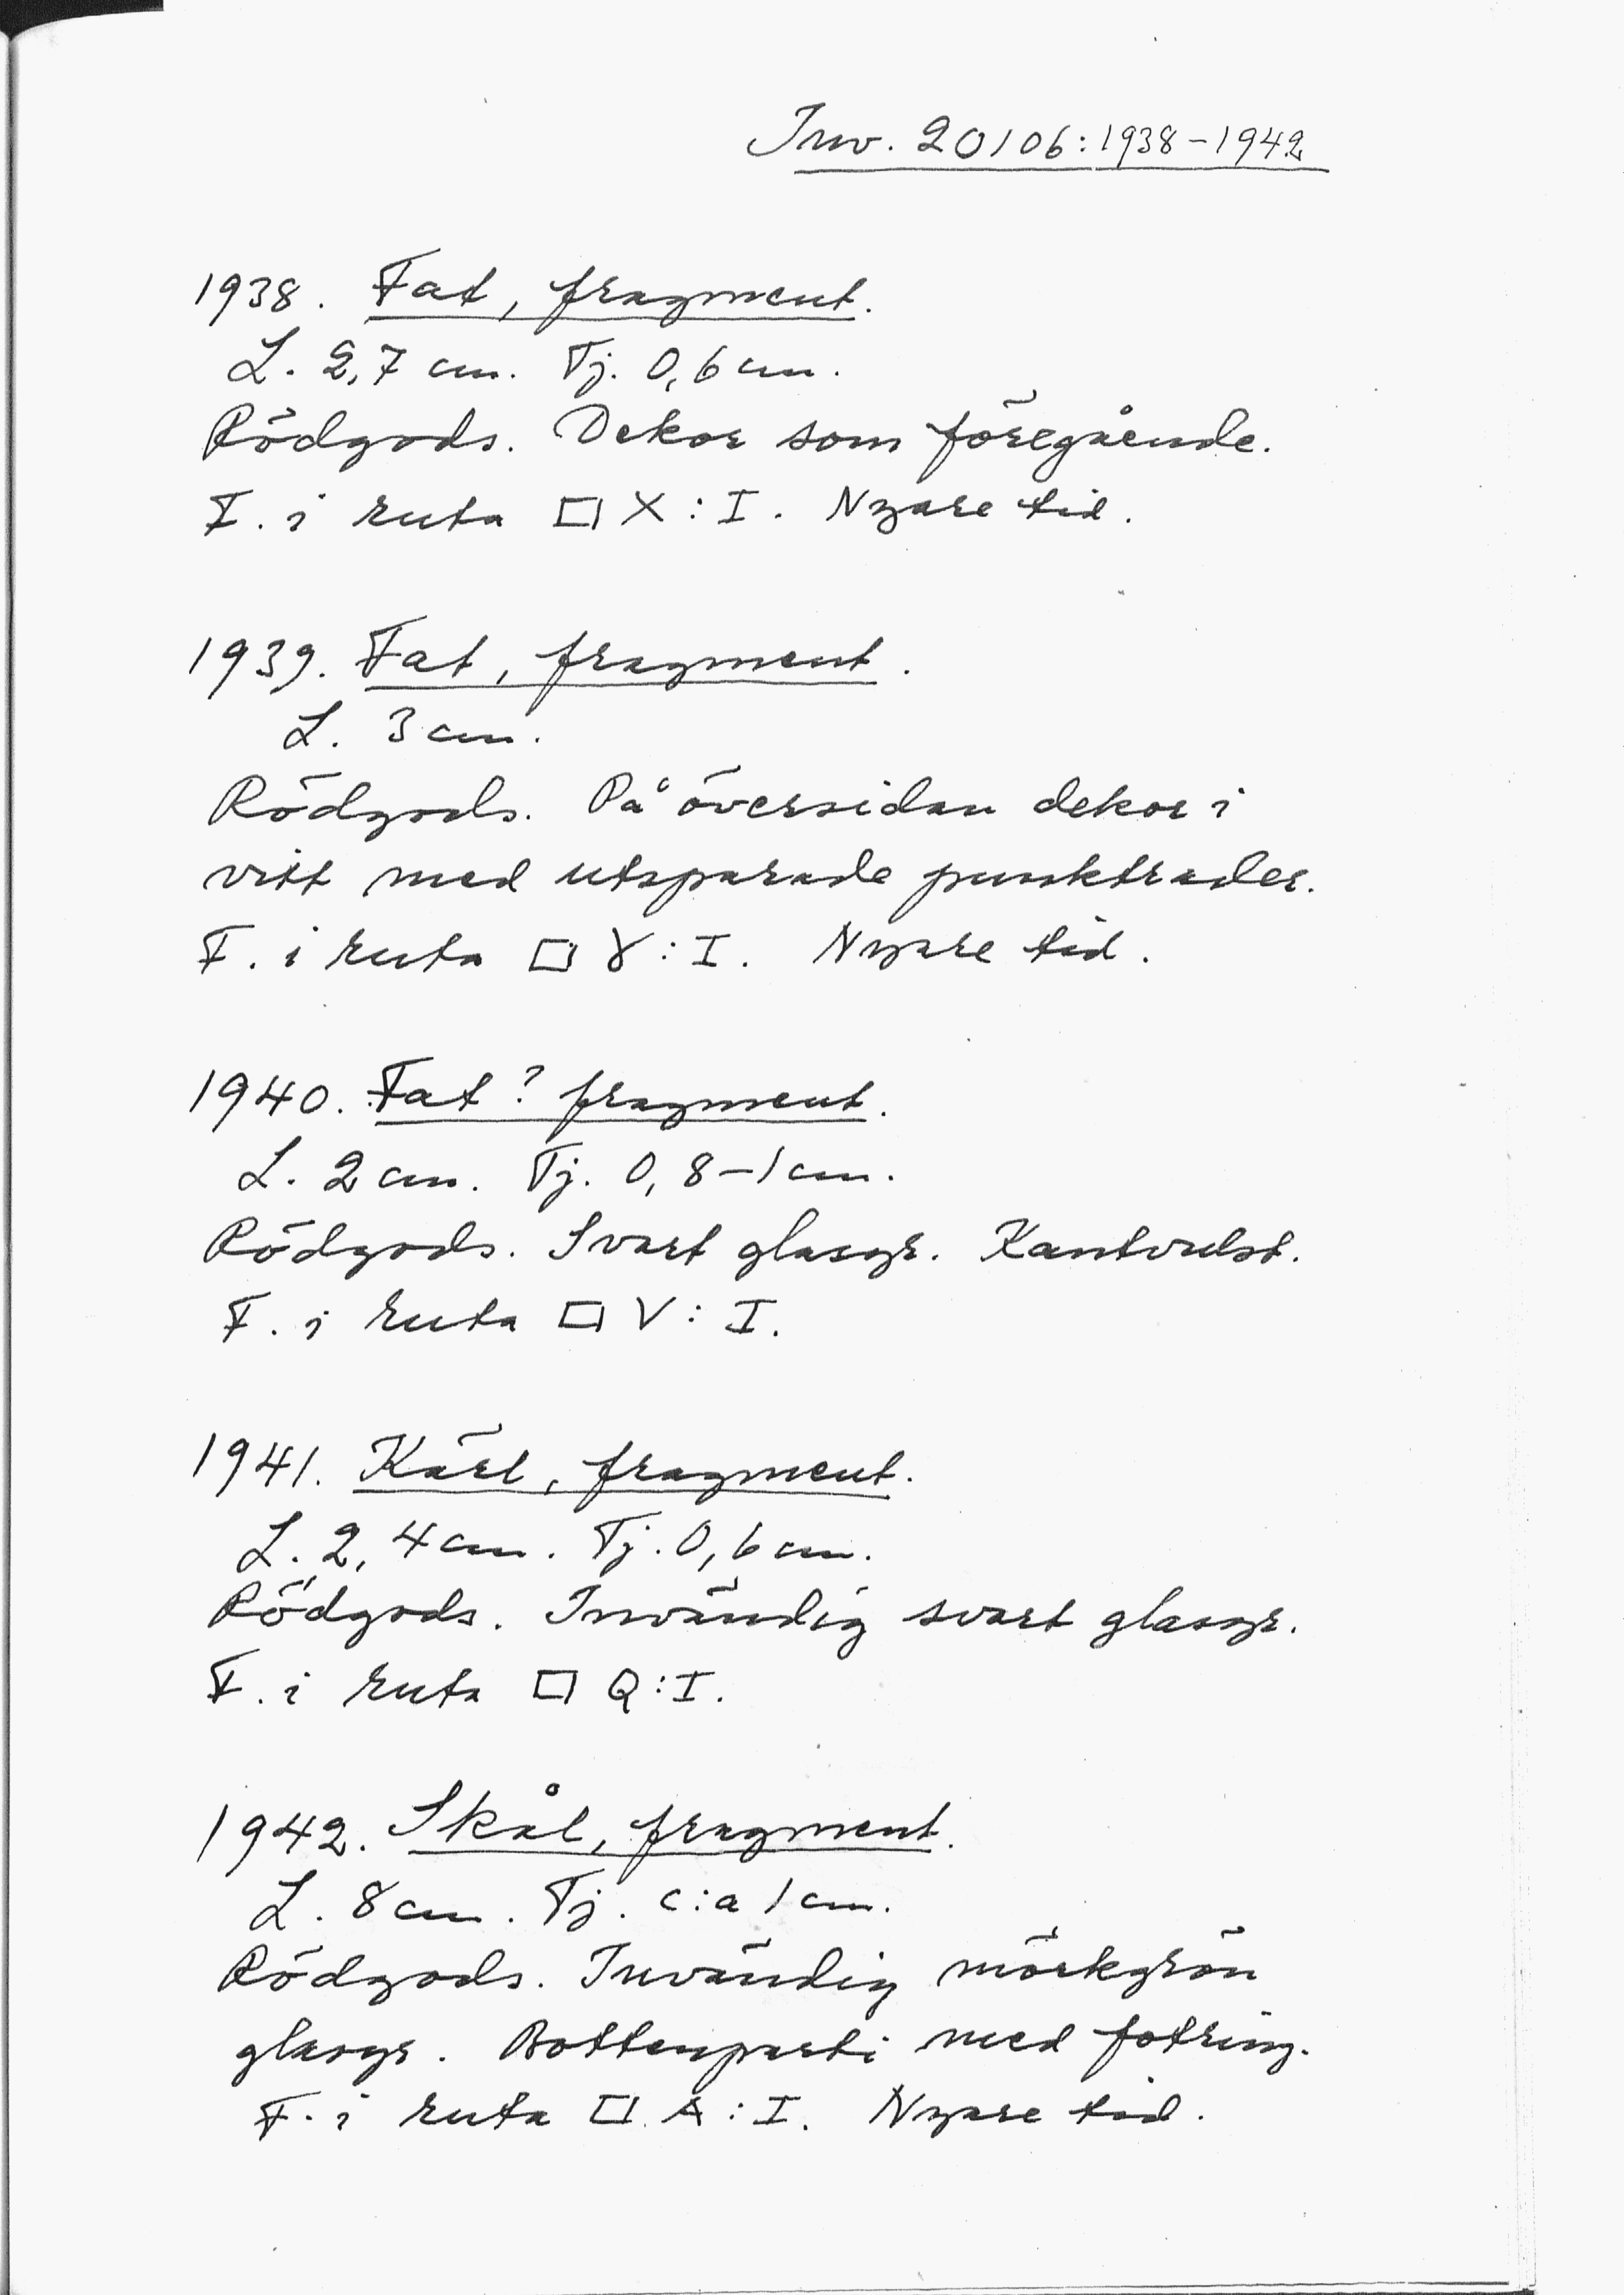 Inv. 20106:1938-1942
1938. Fat, fragment.
L. 2,7 cm. Tj. 0,6 cm.
Rödgods. Dekor som föregående.
F. i ruta □ X:I. Nyare tid.
1939. Fat, fragment.
L. 3 cm.
Rödgods. På översidan dekor i
vitt med utsparade punktrader.
F. i ruta □ Y:I. Nyare tid.
1940. Fat? fragment.
L. 2 cm. Tj. 0,8-1 cm.
Rödgods. Svart glasyr. Kantvulst.
F. i ruta □ V:I.
1941. Kärl, fragment.
L. 2,4 cm. Tj. 0,6 cm.
Rödgods. Invändig svart glasyr.
F. i ruta □ Q:I.
1942. Skål, fragment.
L. 8 cm. Tj. c:a 1 cm.
Rödgods. Invändig mörkgrön
glasyr. Bottenparti med fotring.
F. i ruta □ A:I. Nyare tid.